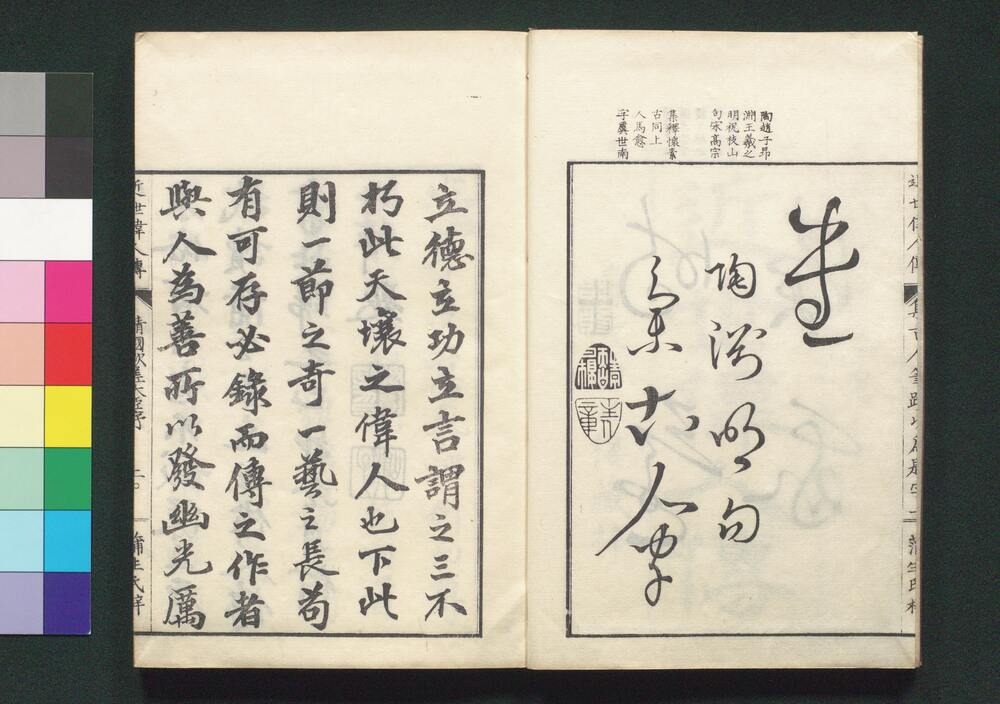 陶趙子昂
淵王羲之
明祝枝山
句宋高宗
集釋懷素
古同上
人馬愈
字虞世南
陶淵明句
集古人字
立德立功立言謂之三不
朽此天壤之偉人也下此
則一節之奇一藝之長苟
有可存必錄而傳之作者
與人為善所以發幽光厲
近世偉人傳 清國欽差大臣序 二 蒲生氏梓